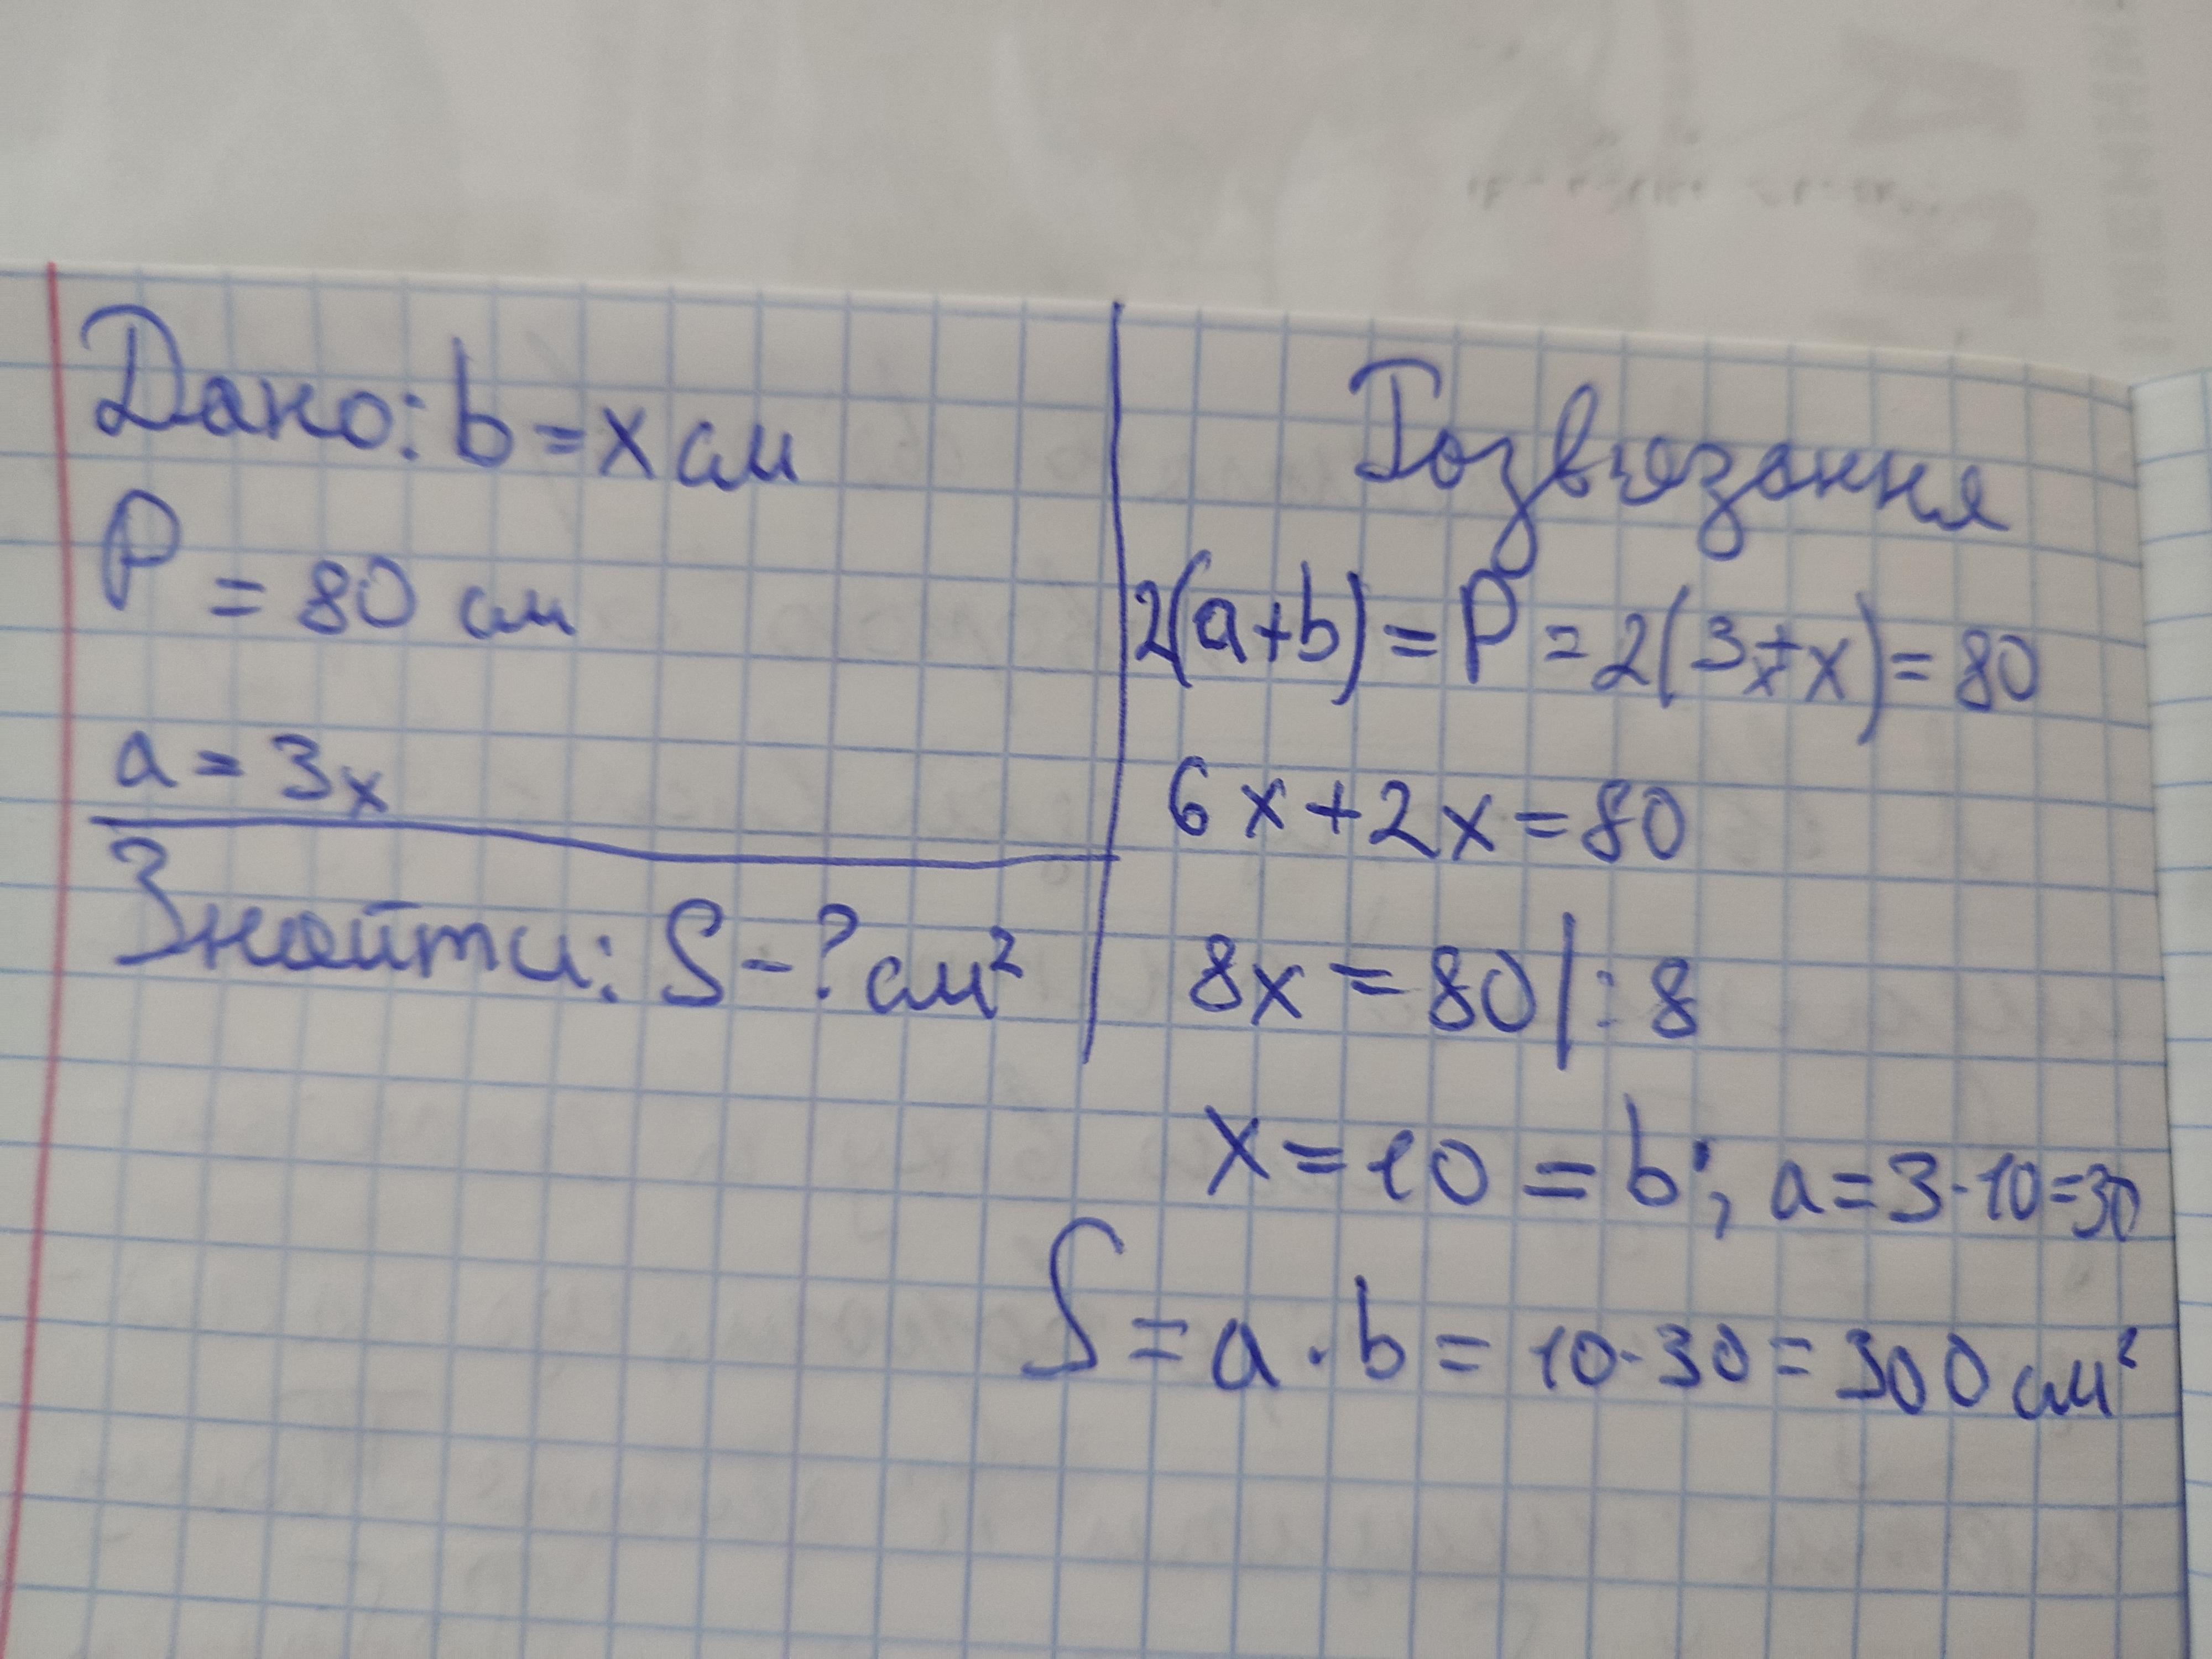 Дано: b = x см
P = 80 см
a = 3x
Знайти: S - ? см²
Розвʼязання
2(a+b) = P = 2(3x+x) = 80
6x+2x=80
8x = 80 | : 8
x = 10 = b; a = 3·10=30
S = a · b = 10·30 = 300 см²